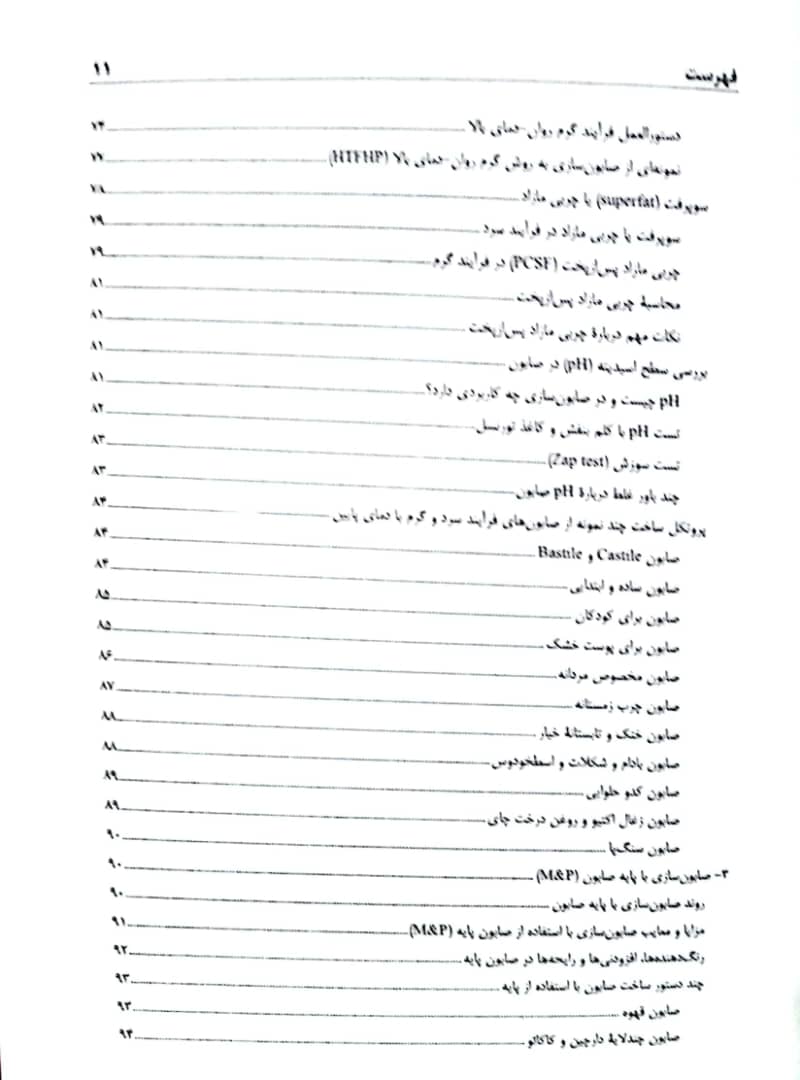 فهرست ۱۱
دستورالعمل فرآیند گرم روان-دمای بالا ۷۴
نمونه‌ای از صابون‌سازی به روش گرم روان-دمای بالا (HTFHP) ۷۷
سوپرفت (superfat) یا چربی مازاد ۷۸
سوپرفت یا چربی مازاد در فرآیند سرد ۷۹
چربی مازاد پس‌ازپخت (PCSF) در فرآیند گرم ۷۹
محاسبهٔ چربی مازاد پس‌ازپخت ۸۱
نکات مهم دربارهٔ چربی مازاد پس‌ازپخت ۸۱
بررسی سطح اسیدیته (pH) در صابون ۸۱
pH چیست و در صابون‌سازی چه کاربردی دارد؟ ۸۱
تست pH با کلم بنفش و کاغذ تورنسل ۸۲
تست سوزش (Zap test) ۸۳
چند باور غلط دربارهٔ pH صابون ۸۳
پروتکل ساخت چند نمونه از صابون‌های فرآیند سرد و گرم با دمای پایین ۸۴
صابون Castile و Bastile ۸۴
صابون ساده و ابتدایی ۸۴
صابون برای کودکان ۸۵
صابون برای پوست خشک ۸۵
صابون مخصوص مردانه ۸۶
صابون چرب زمستانه ۸۷
صابون خنک و تابستانهٔ خیار ۸۸
صابون بادام و شکلات و اسطخودوس ۸۸
صابون کدو حلوایی ۸۹
صابون زغال اکتیو و روغن درخت چای ۸۹
صابون سنگ‌پا ۹۰
۳- صابون‌سازی با پایه صابون (M&P) ۹۰
روند صابون‌سازی با پایه صابون ۹۰
مزایا و معایب صابون‌سازی با استفاده از صابون پایه (M&P) ۹۱
رنگ‌دهنده‌ها، افزودنی‌ها و رایحه‌ها در صابون پایه ۹۲
چند دستور ساخت صابون با استفاده از پایه ۹۳
صابون قهوه ۹۳
صابون چندلایهٔ دارچین و کاکائو ۹۴